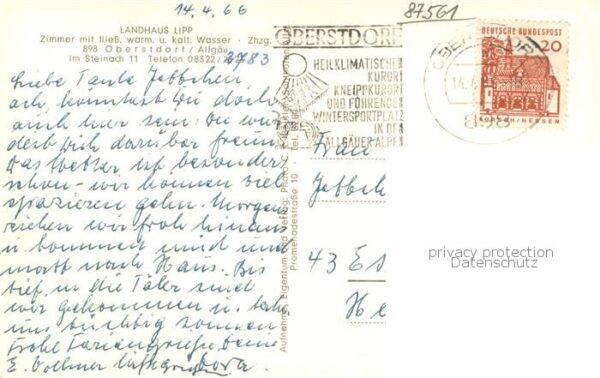 14.4.66
87561
LANDHAUS LIPP
Zimmer mit fließ. warm. u. kalt. Wasser - Zhzg.
898 Oberstdorf / Allgäu
Im Steinach 11 Telefon 08322/ 2783
OBERSTDORF
HEILKLIMATISCHER
KURORT
KNEIPPKURORT
UND FÜHRENDER
WINTERSPORTPLATZ
IN DEN
ALLGÄUER ALPEN
DEUTSCHE BUNDESPOST
20
LORSCH/HESSEN
898
Liebe Tante Jettchen
ach, könntest Du doch
auch hier sein. Du wür
dest Dich darüber freuen
Das Wetter ist besonders
schön - wir können viel
spazieren gehn. Morgens
ziehen wir froh hinaus
u. kommen und
nach Haus. Bis
tief in die Täler sind
wir gekommen u.
uns tüchtig sonnen
Frohe Feriengrüße Deine
E. Dora
Aufnahmen, Eigentum und Verlag: Photo
Promenadestraße 10 - Tel.
Frau
Jettch
43 Es
He
privacy protection
Datenschutz